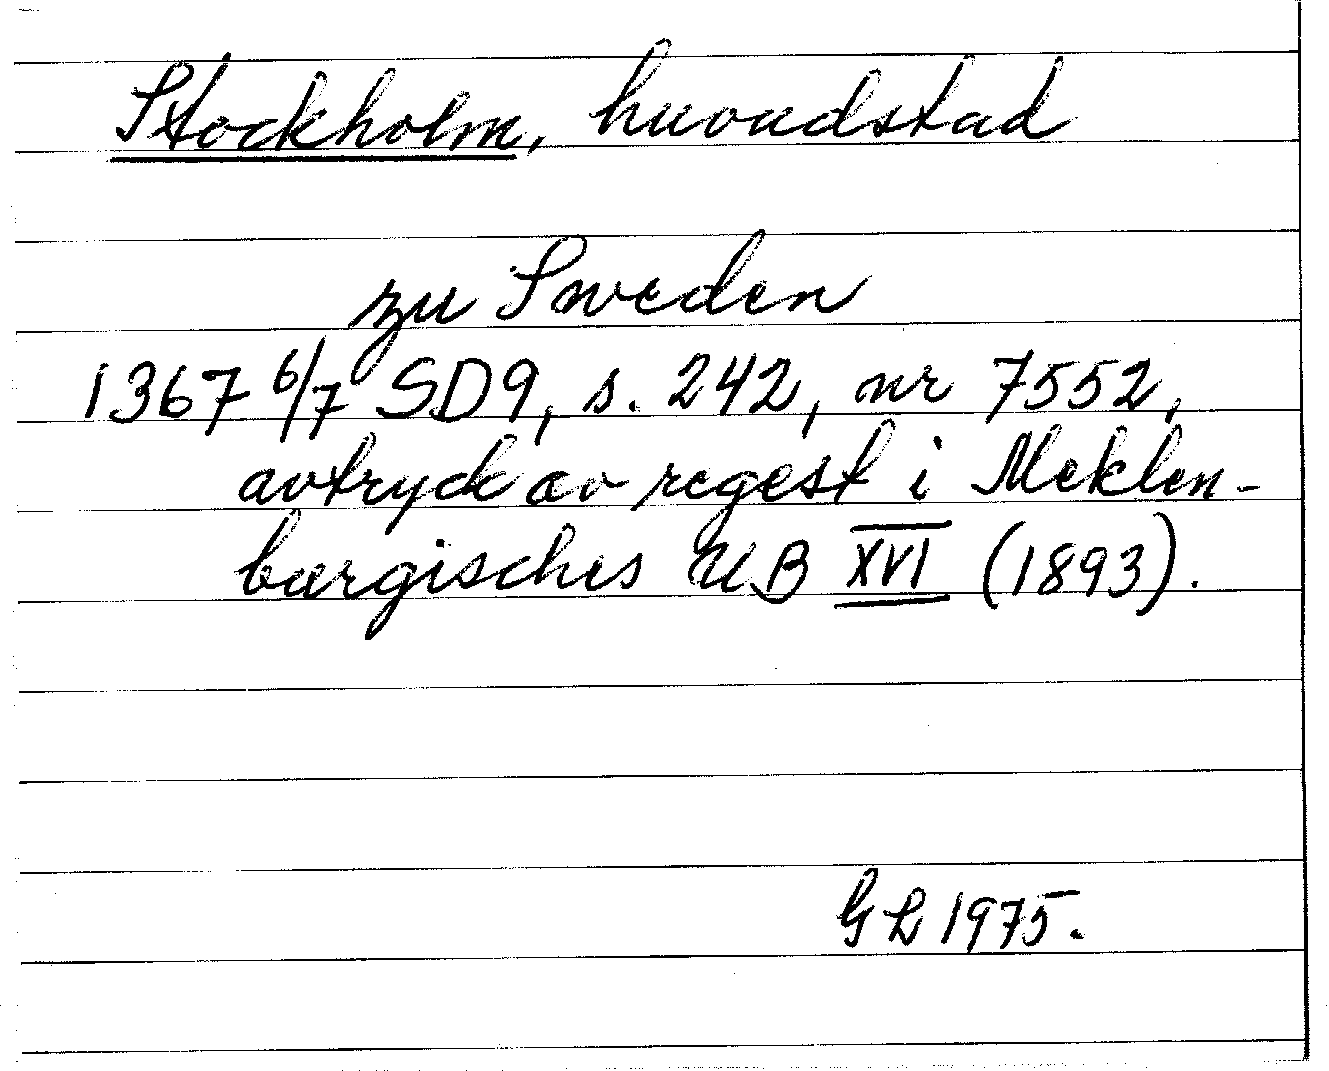 Stockholm, huvudstad
zu Sweden
1367 6/7 SD9, s. 242, nr 7552,
avtryck av regest i Meklen-
burgisches UB XVI (1893).
GL 1975.